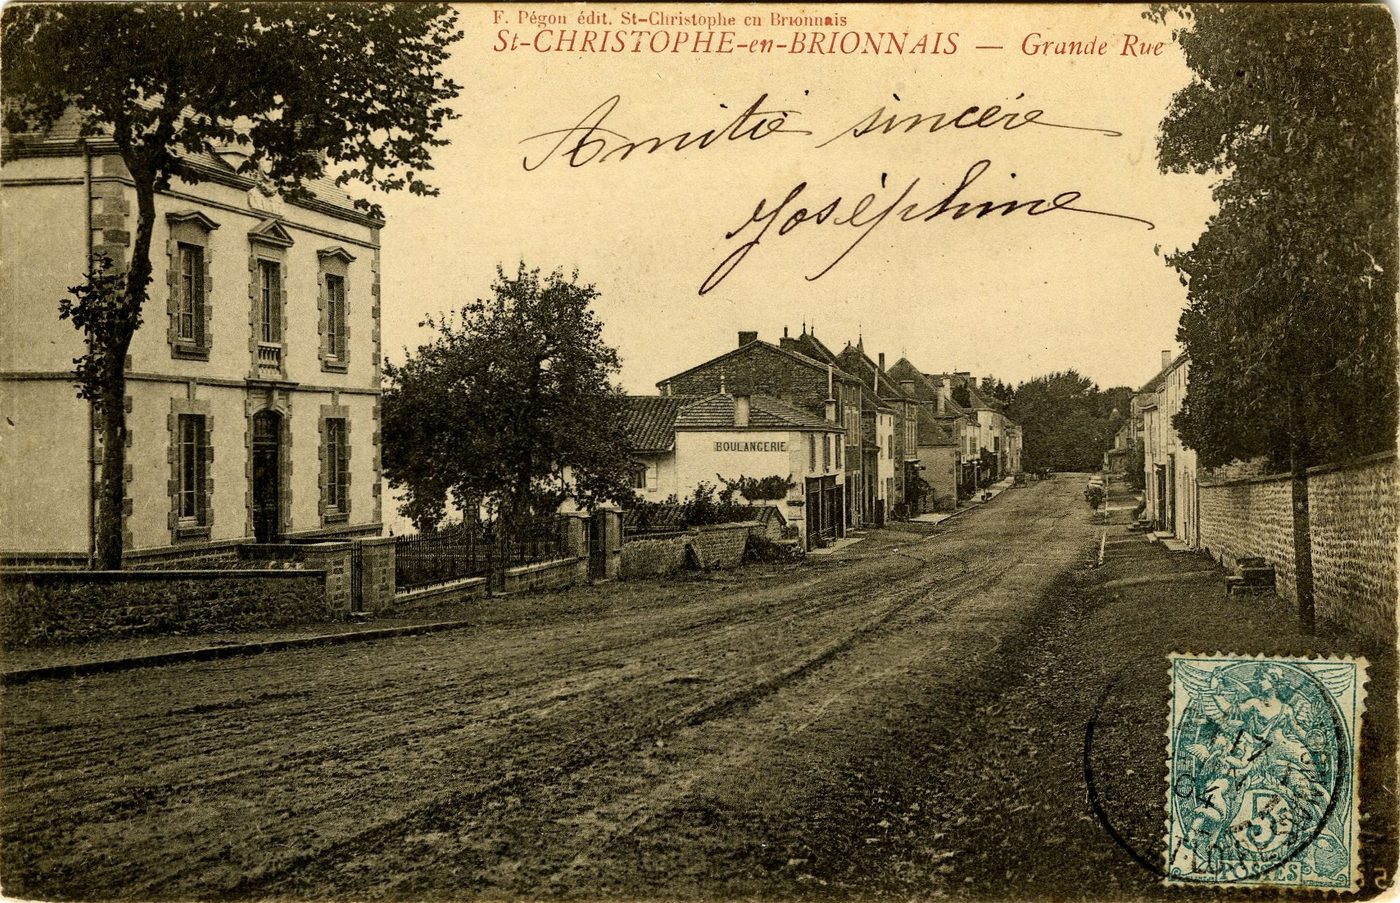 F. Pégon édit. St-Christophe en Brionnais
St-CHRISTOPHE-en-BRIONNAIS — Grande Rue
Amitié sincére
Joséphine
BOULANGERIE
5
POSTES